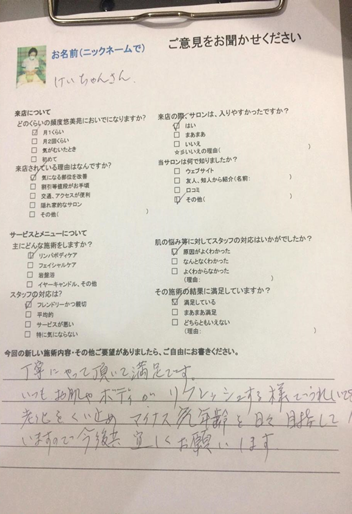 ご意見をお聞かせください
お名前(ニックネームで)
けいちゃんさん
来店について
どのくらいの頻度悠美苑においでになりますか?
月1くらい
月2回くらい
気がむいたとき
初めて
来店されている理由はなんですか?
気になる部位を改善
割引等値段がお手頃
交通、アクセスが便利
隠れ家的なサロン
その他( )
来店の際、サロンは、入りやすかったですか?
はい
まあまあ
いいえ
☆いいえの理由( )
当サロンは何で知りましたか?
ウェブサイト
友人、知人から紹介(名前: )
口コミ
その他( )
サービスとメニューについて
主にどんな施術をしますか?
リンパボディケア
フェイシャルケア
岩盤浴
イヤーキャンドル、その他
スタッフの対応は?
フレンドリーかつ親切
平均的
サービスが悪い
特に気にならない
肌の悩み等に対してスタッフの対応はいかがでしたか?
原因がよくわかった
なんとなくわかった
よくわからなかった
(理由: )
その施術の結果に満足していますか?
満足している
まあまあ満足
どちらともいえない
(理由: )
今回の新しい施術内容・その他ご要望がありましたら、ご自由にお書きください。
丁寧にやって頂いて満足です。
いつもお肌やボディがリフレッシュする様でうれしいです
老化をくい止めマイナス 年齢を日々目指して
いますので今後共宜しくお願いします